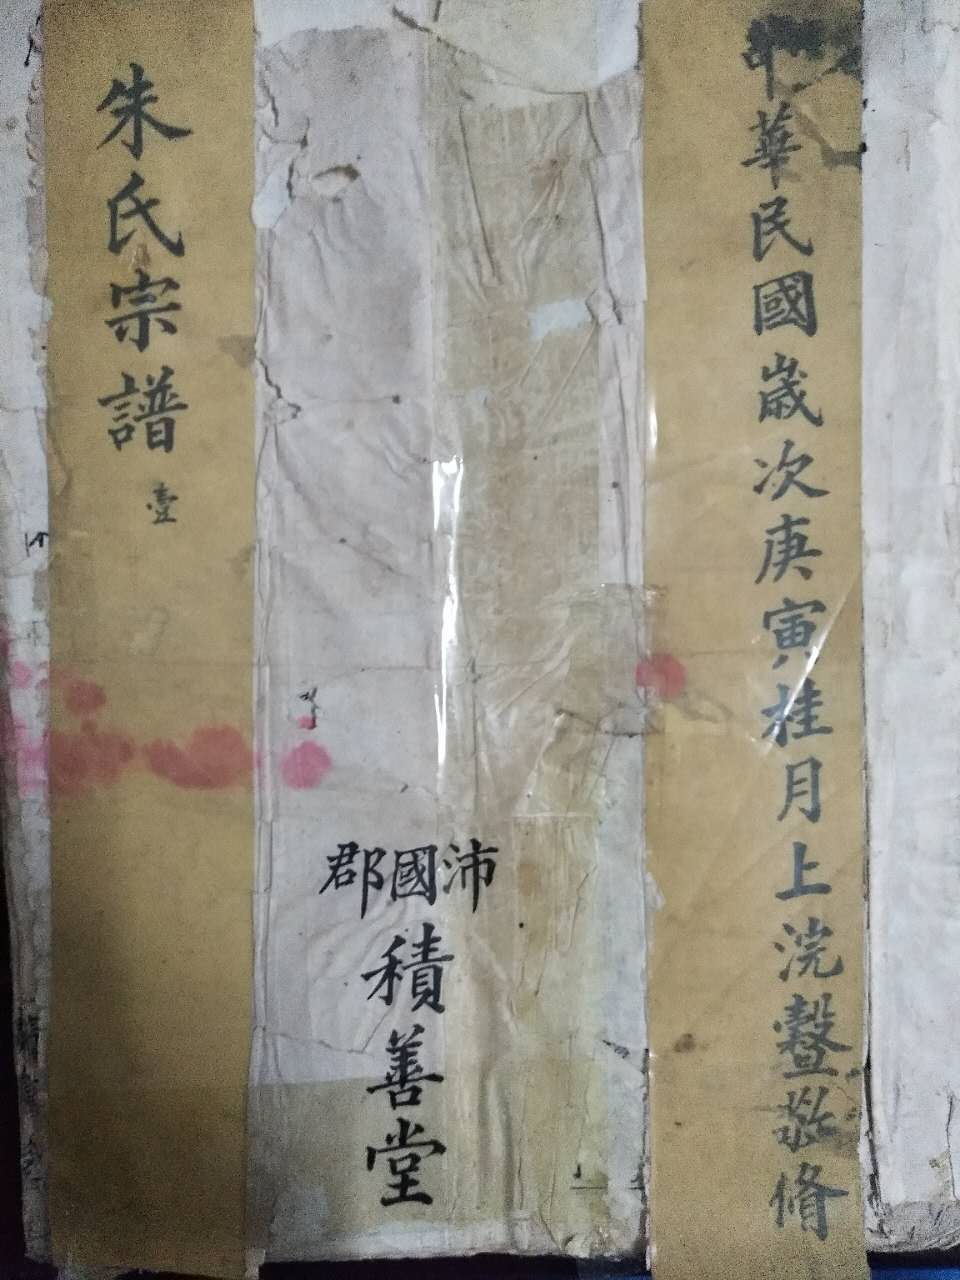 中華民國歲次庚寅桂月上浣鼟敬脩
沛國郡
積善堂
朱氏宗譜 壹